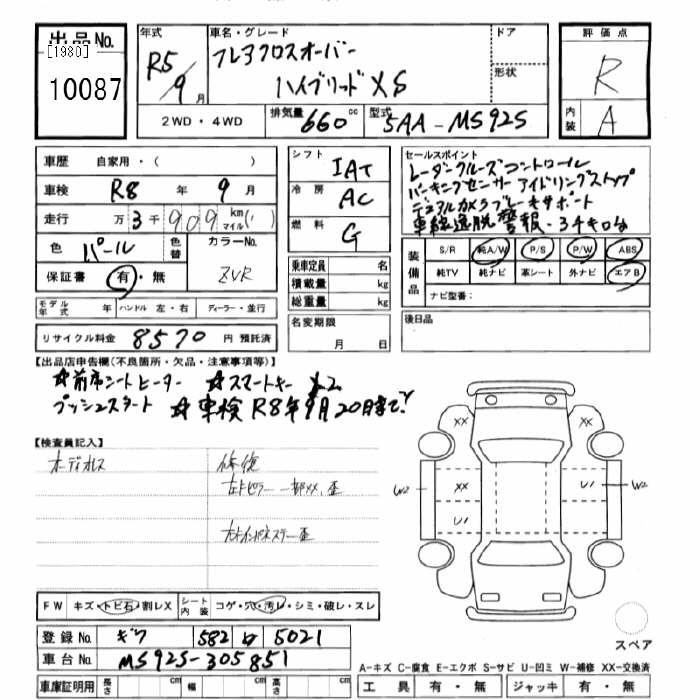 出品No.
[1980]
10087
年式
R5/9月
車名・グレード
フレアクロスオーバー
ハイブリッドXS
ドア
形状
評価点
R
内装
A
2WD・4WD
排気量 660 cc
型式 5AA-MS92S
車歴 自家用・( )
車検 R8年9月
走行 万3千909km マイル( )
色 パール
色替
カラーNo. ZVR
保証書 有・無
モデル年式 年 ハンドル 左・右 ディーラー・並行
リサイクル料金 8570円 預託済
シフト IAT
冷房 AC
燃料 G
乗車定員 名
積載量 kg
総重量 kg
名変期限
月 日
セールスポイント
レーダークルーズコントロール
パーキングセンサー アイドリングストップ
デュアルカメラブレーキサポート
車線逸脱警報・3千キロ台
装備品
S/R 純A/W P/S P/W ABS
純TV 純ナビ 革シート 外ナビ エアB
ナビ型番:
後日品
【出品店申告欄(不良箇所・欠品・注意事項等)】
☆前席シートヒーター ☆スマートキー X2
プッシュスタート ☆車検R8年9月20日まで!
【検査員記入】
オーディオレス
修復
一部XX、歪
歪
XX XX
W2 XX U1 W2
U1
FW キズ・トビ石・割レX
シート内装 コゲ・穴・汚レ・シミ・破レ・スレ
登録No. 582 5021
車台No. MS92S-305851
車庫証明用 長さ cm 幅 cm 高さ cm
スペア
A-キズ C-腐食 E-エクボ S-サビ U-凹ミ W-補修 XX-交換済
工具 有・無 ジャッキ 有・無